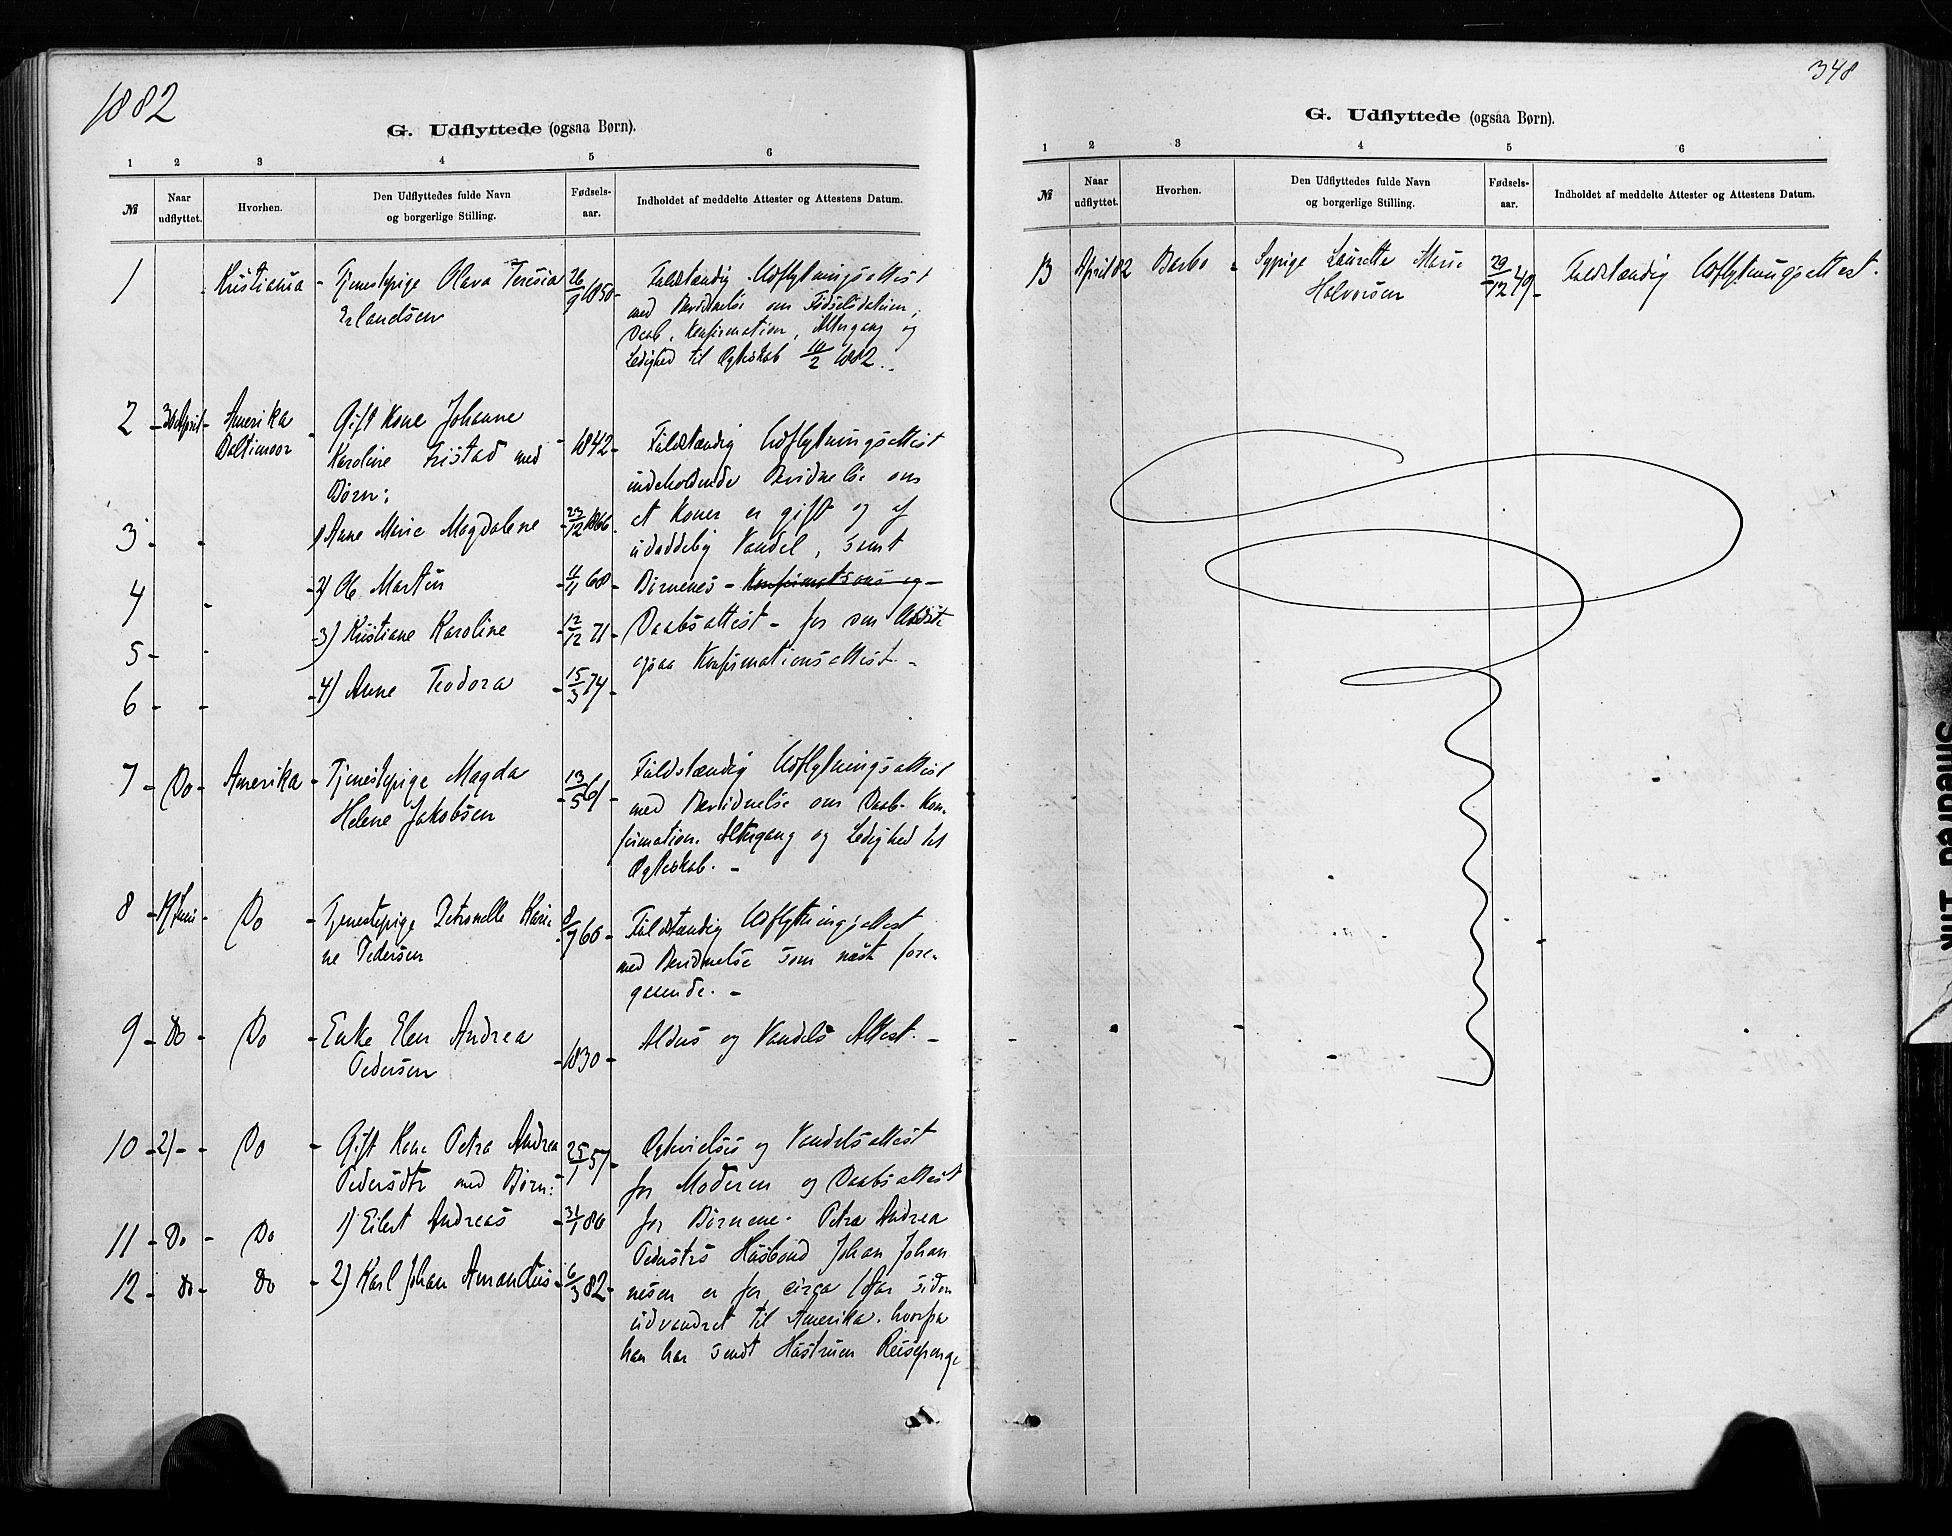 1882
G. Udflyttede (ogsaa Børn).
1 2 3 4 5 6
№ Naar udflyttet. Hvorhen. Den Udflyttedes fulde Navn og borgerlige Stilling. Fødsels-aar. Indholdet af meddelte Attester og Attestens Datum.
1 Kristiania - Tjenestepige Olava Teresia 26/9 1850 - Fuldstændig Udflytningsattest
Erlandsen
med Bevidnelse om Fødselsdatum,
Daab, Konfirmation, Altergang og
Ledighed til Ægteskab 10/2 1882.
2 - 30 April - Amerika Baltimoor - Gift Kone Johanne
Karoline Fristad med - 1842 - Fuldstændig Udflytningsattest
Børn:
indeholdende Bevidnelse om
3 - - 1) Anne Marie Magdalene - 23/12 1866 - at Konen er gift og af
udaddelig Vandel, samt
4 - 2) Ole Martin - 11/11 68 - Børnenes - Konfirmations og -
5 - - 3) Kristiane Karoline - 12/12 71 - Daabsattest - for den Ældste
ogsaa Konfirmationsattest. -
6 - - 4) Anne Teodora - 15/3 74 -
7 - Do - Amerika - Tjenestepige Magda 13/5 61 - Fuldstændig Udflytningsattest
Helene Jakobsen
med Bevidnelse om Daab - Kon-
firmation, Altergang og Ledighed til
Ægteskab. -
8 - 19 Juni - Do - Tjenestepige Petronelle Kari- 8/9 60 - Fuldstændig Udflytningsattest
ne Pedersen
med Bevidnelse som næst fore-
gaaende. -
9 - Do - Do - Enke Elen Andrea - 1830 - Alders og Vandels Attest. -
Pedersen
10 - 21 - - Do - Gift Kone Petra Andrea 25/1 57 - Ægtevielses og Vandelsattest
Pedersdtr med Børn:
for Moderen og Daabsattest
11 - Do - Do 1) Eilert Andreas - 31/1 80 for Børnene. Petra Andrea
Pedersdtrs Husbond Johan Johan
12 - Do - Do - 2) Karl Johan Amandus - 6/3 82 - nesen er for circa 1 Aar siden
udvandret til Amerika, hvorfra
han har sendt Hustruen Reisepenge
348
G. Udflyttede (ogsaa Børn).
1 2 3 4 5 6
№ Naar udflyttet. Hvorhen. Den Udflyttedes fulde Navn og borgerlige Stilling. Fødsels-aar. Indholdet af meddelte Attester og Attestens Datum.
13 April 82 Barbo - Sypige Laurette Marie 29/12 49 - Fuldstændig Udflytningsattest.
Halvorsen